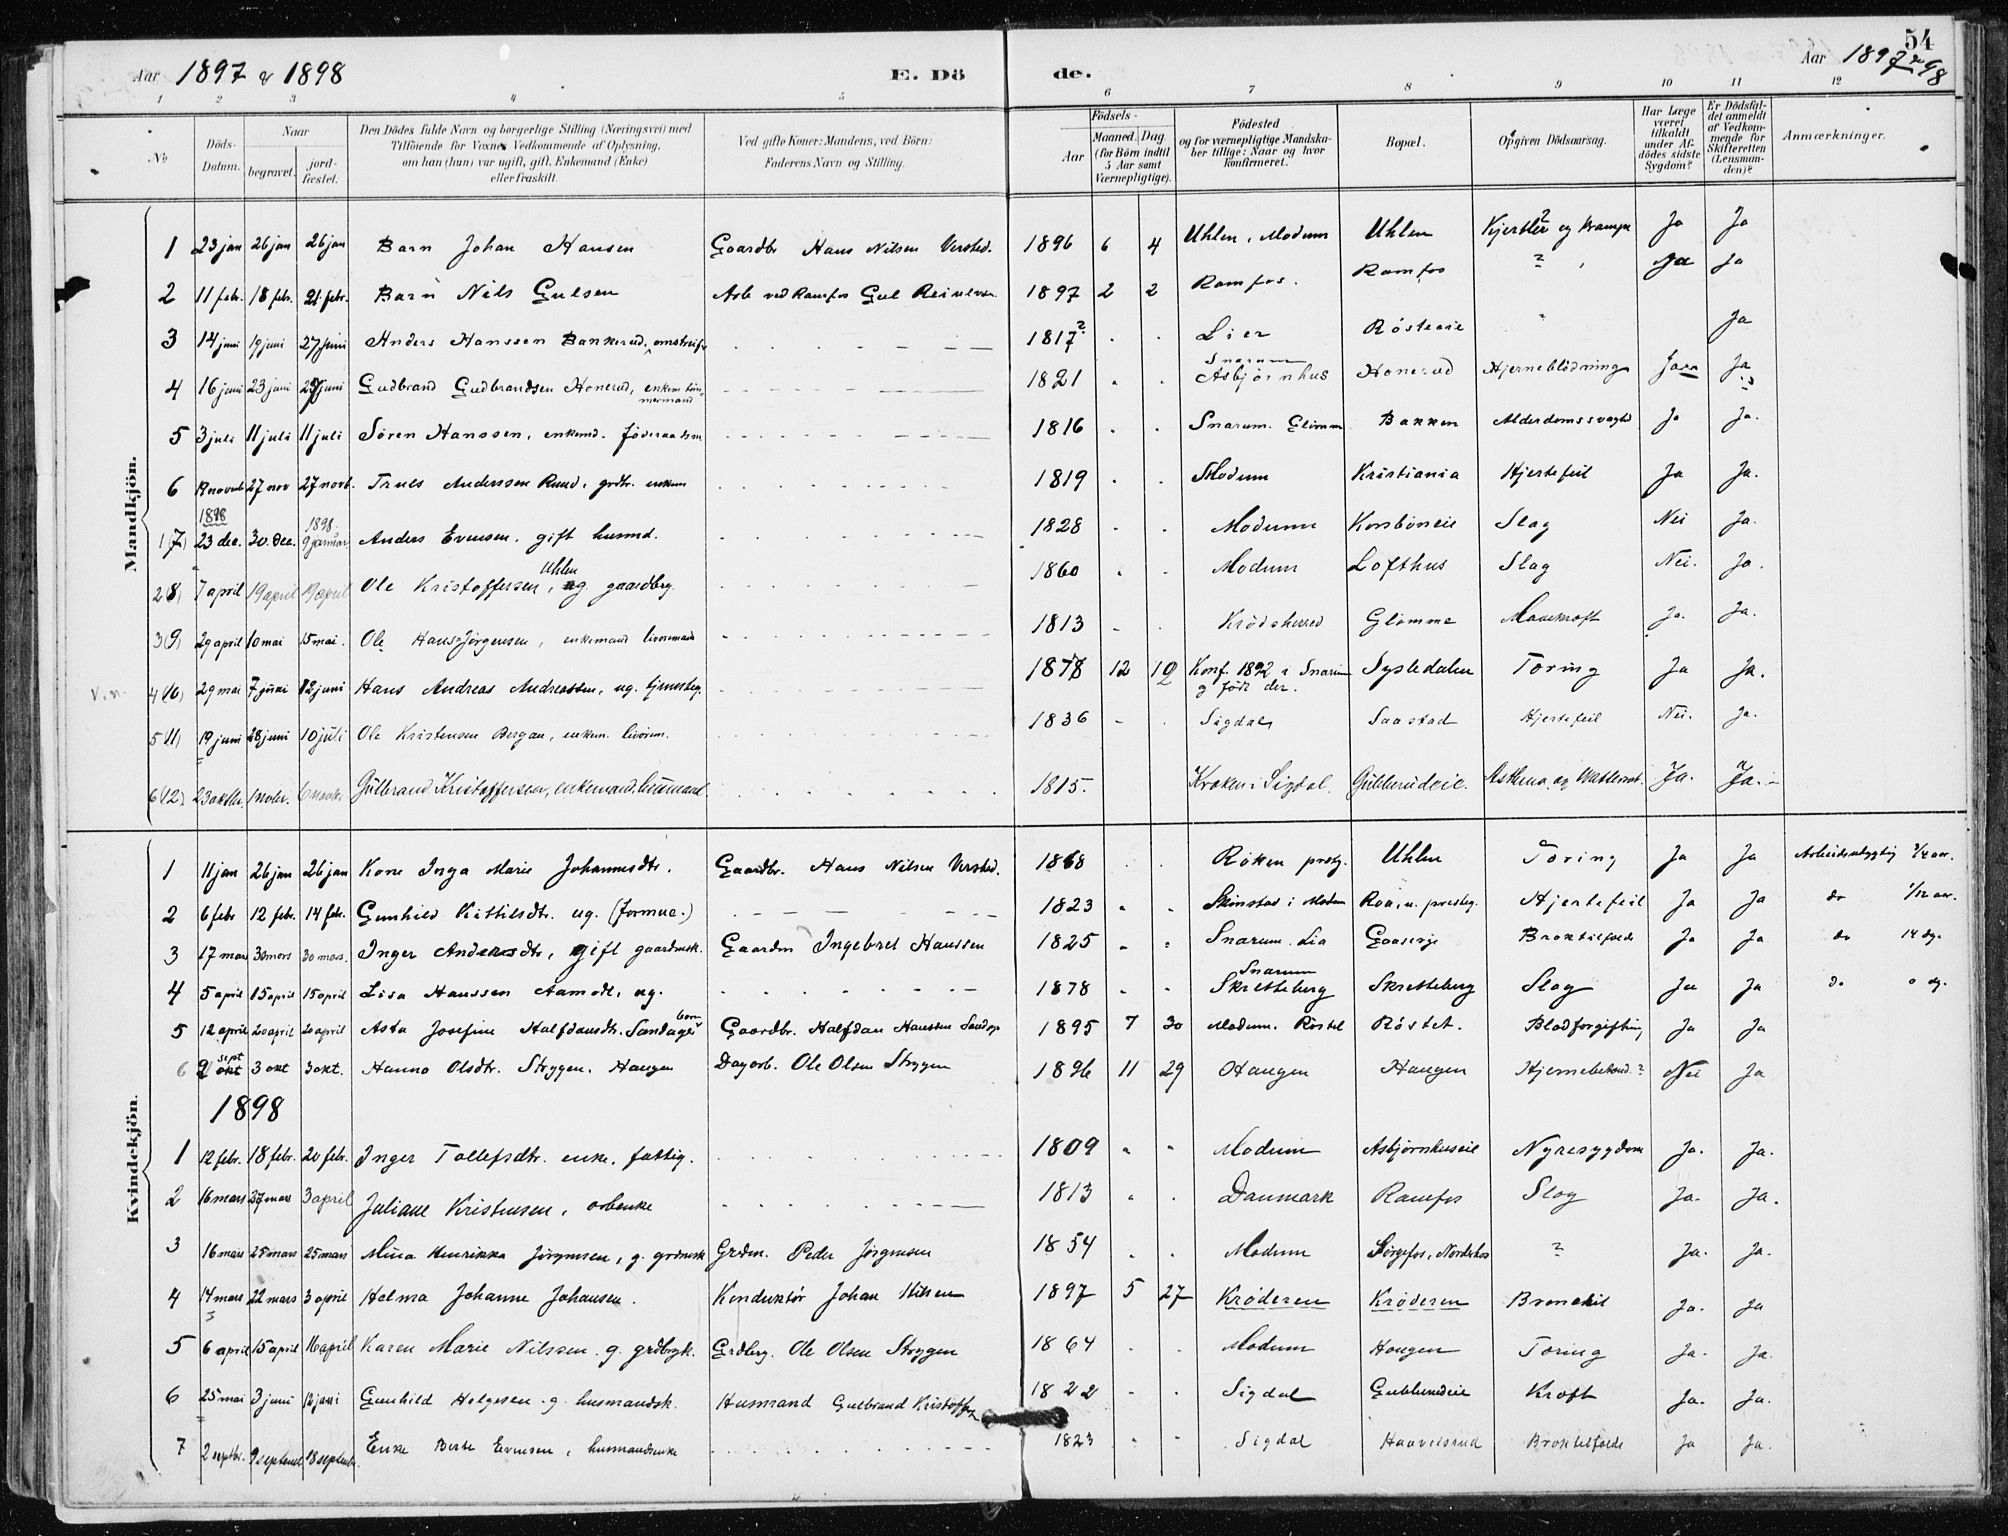 54
Aar 1897 & 1898 E. Dö de. Aar 1897 & 98
1 2 3 4 5 6 7 8 9 10 11 12
No Döds-Datum. Naar begravet. jord-fæstet. Den Dödes fulde Navn og borgerlige Stilling (Næringsvei) med Tilföiende for Voxnes Vedkommende af Oplysning, om han (hun) var ugift, gift, Enkemand (Enke) eller fraskilt. Ved gifte Koner: Mandens, ved Börn: Faderens Navn og Stilling. Födsels- Aar Maaned. Dag. (for Börn indtil 5 Aar samt Værnepligtige). Födested og for værnepligtige Mandskaber tillige: Naar og hvor konfirmeret. Bopæl. Opgiven Dödsaarsag. Har Læge været tilkaldt under Afdödes sidste Sygdom? Er Dödsfaldet anmeldt af Vedkommende for Skifteretten (Lensmanden)? Anmærkninger.
Mandkjön.
1 23 jan 26 jan 26 jan Barn Johan Hansen Gaardbr Hans Nilsen Versted. 1896 6 4 Uhlen, Modum Uhlen Kjertler ? og krampe Ja Ja
2 11 febr. 18 febr. 21 febr. Barn Nils Gulsen Arb ved Ramfos Gul 1897 2 2 Ramfos. Ramfos ? Ja Ja
3 14 juni 19 juni 27 juni Anders Hanssen Bankerud, omstreifr 1817 ? Lier Røsteeie Ja
4 16 juni 23 juni 27 juni Gudbrand Gudbrandsen Honerud, enkem tømmermand 1821 Snarum Asbjørnhus Honerud Hjerneblödning Ja Ja
5 3 juli 11 juli 11 juli Søren Hanssen, enkemd. föderaadsm 1816 Snarum. Glömm Bakken Alderdomssvaghd Ja Ja.
6 19 novmb 27 nov 27 novb. Truls Anderssen Ruud, grdbr. enkem 1819 Modum Kristiania Hjertefeil Ja Ja.
1898
1(7) 23 dec. 30. dec. 1898. 9 januar Anders Evensen, gift husmd. 1828 Modum Korsböneie Slag Nei Ja.
2(8) 7 april 19 april 19 april Ole Kristoffersen Uhlen, ug. gaardbrg. 1860 Modum Lofthus Slag Nei. Ja.
3(9) 29 april 10 mai 15 mai. Ole Hans Jörgensen, enkemand livöremand 1813 Krödsherred Glömme Mavekræft Ja. Ja.
v. n. 4(10) 29 mai 7 juni 12 juni Hans Andreas Andreassen, ug. tjenstkg. 1878 12 19 Konf. 1892 i Snarum og født der. Sysledalen Tæring Ja Ja.
5 11) 19 juni 28 juni 10 juli Ole Kristensen Bergan, enkem. livörem. 1836 Sigdal Saastad Hjertefeil Nei. Ja.
6 12) 23 oktbr. 1 novbr. 6 novbr Gulbrand Kristoffersen, enkemand, husmand 1815. Kroken i Sigdal Gubberudeie. Asthma og Vattersot. Ja. Ja.
Kvindekjön.
1 11 jan 26 jan 26 jan Kone Inga Marie Johannesdtr. Gaardbr. Hans Nilsen Versted. 1868 Røken prstg. Uhlen Tæring Ja Ja Arbeidsudygtig ¾ aar.
2 6 febr 12 febr. 14 febr. Gunhild Kittilsdtr. ug. (formue.) 1823 Skinstad i Modum Roa, n. prestg. Hjertefeil Ja Ja do 1/12 aar.
3 17 mars 30 mars 30 mars. Inger Andersdtr, gift gaardmsk. Gaardm Ingebret Hanssen 1825 Snarum. Lia Gaaserje Broktilfælde Ja Ja do 14 dg.
4 5 april 15 april 15 april Lisa Hanssen Aamodt, ug. 1878 Snarum Skretteberg Skretteberg Slag Ja Ja do 0 dg.
5 12 april 20 april 20 april Asta Josefine Halfdansdtr. Sandager barn Gaardbr. Halfdan Hanssen Sandage 1895 7 30 Modum. Røstet Røstet. Blodforgiftning Ja Ja
6 2 sept okt 3 okt 3 okt. Hanna Olsdtr. Stryggen. Haugen Dagarb. Ole Olsen Stryggen 1896 11 29 Haugen Haugen Hjernebetænd. ? Nei Ja
1898
1 12 febr. 18 febr. 20 febr. Inger Tollefsdtr. enke, fattig. 1809 Modum Asbjørnhuseie Nyresygdom Ja. Ja.
2 16 mars 27 mars 3 april Juliane Kristensen, arbenke 1813 Danmark Ramfos Slag Ja. Ja.
3 16 mars 25 mars 25 mars Mina Henrikka Jörgensen, g. grdmsk Grdm. Peder Jörgensen 1854 Modum ? Ja. Ja.
4 14 mars 22 mars 3 april Helma Johanne Johansen. Konduktör Johan Nilsen 1897 5 27 Krøderen Krøderen Bronchit Ja. Ja
5 6 april 15 april 16 april Karen Marie Nilssen. g. grdbrgk. Grdbrg. Ole Olsen Stryggen 1864 Modum Haugen Tæring Ja. Ja.
6 25 mai 3 juni 12 juni Gunhild Helgesen g. husmandsk. Husmand Gulbrand Kristoffers 1822 Sigdal Gubberudeie Kræft Ja. Ja.
7 2 septbr. 9 septemb 18 septembr. Enke Berte Evensen, husmandsenke 1823 Sigdal Haavelsrud Broktilfælde Ja Ja.